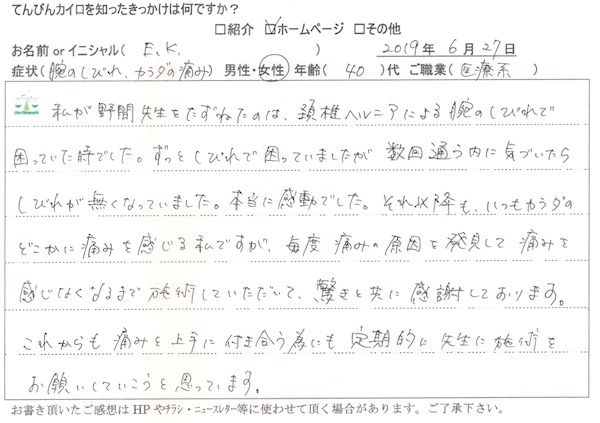 てんびんカイロを知ったきっかけは何ですか?
□紹介 ☑ホームページ □その他
お名前 or イニシャル( E.K. ) 2019年 6月 27日
症状(腕のしびれ、カラダの痛み) 男性・女性 年齢( 40 )代 ご職業(医療系)
私が野間先生をたずねたのは、頚椎ヘルニアによる腕のしびれで
困っていた時でした。ずっとしびれで困っていましたが 数回通う内に気づいたら
しびれが無くなっていました。本当に感動でした。それ以降も、いつもカラダの
どこかに痛みを感じる私ですが、毎度 痛みの原因を発見して 痛みを
感じなくなるまで施術していただいて、驚きと共に感謝しております。
これからも痛みと上手に付き合う為にも定期的に先生に施術を
お願いしていこうと思っています。
お書き頂いたご感想はHPやチラシ・ニュースレター等に使わせて頂く場合があります。ご了承下さい。